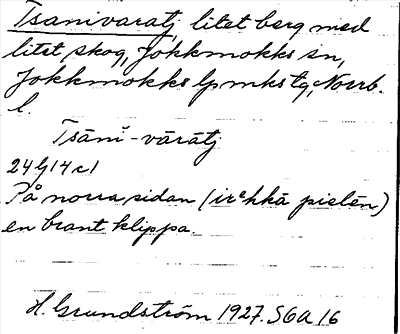 Tsanivaratj, litet berg med
litet skog, Jokkmokks sn,
Jokkmokks lpmkstg, Norrb.
l.
Tsäni-vārātj
24 G 14 c 1
På norra sidan (irᵉhkā pielēn)
en brant klippa.
H. Grundström 1927. SGA 16